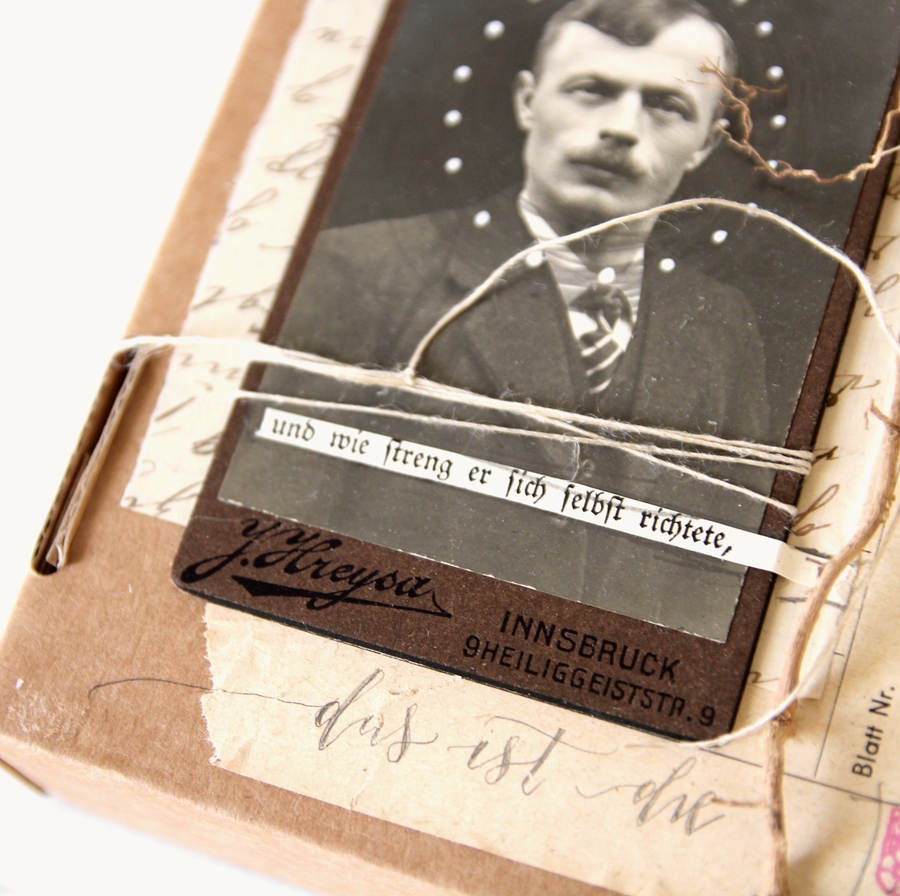 und wie ſtreng er ſich ſelbſt richtete,
INNSBRUCK
9 HEILIGGEISTSTR. 9
das ist die
Blatt Nr.